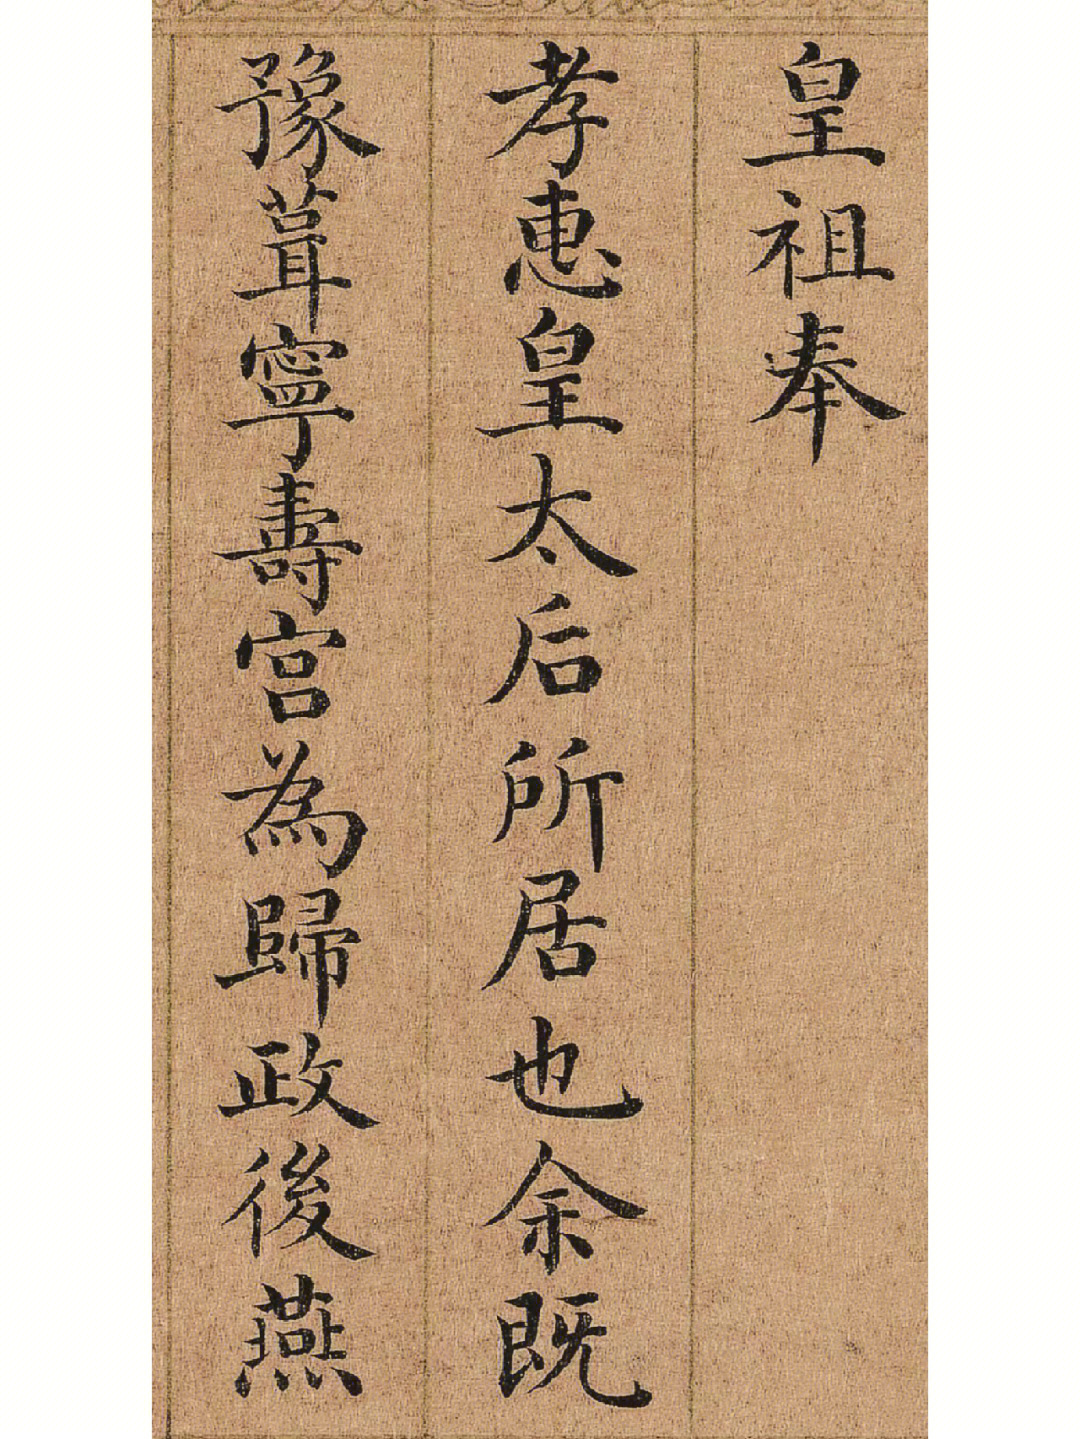 皇祖奉
孝惠皇太后所居也余既
豫葺寧壽宮為歸政後燕